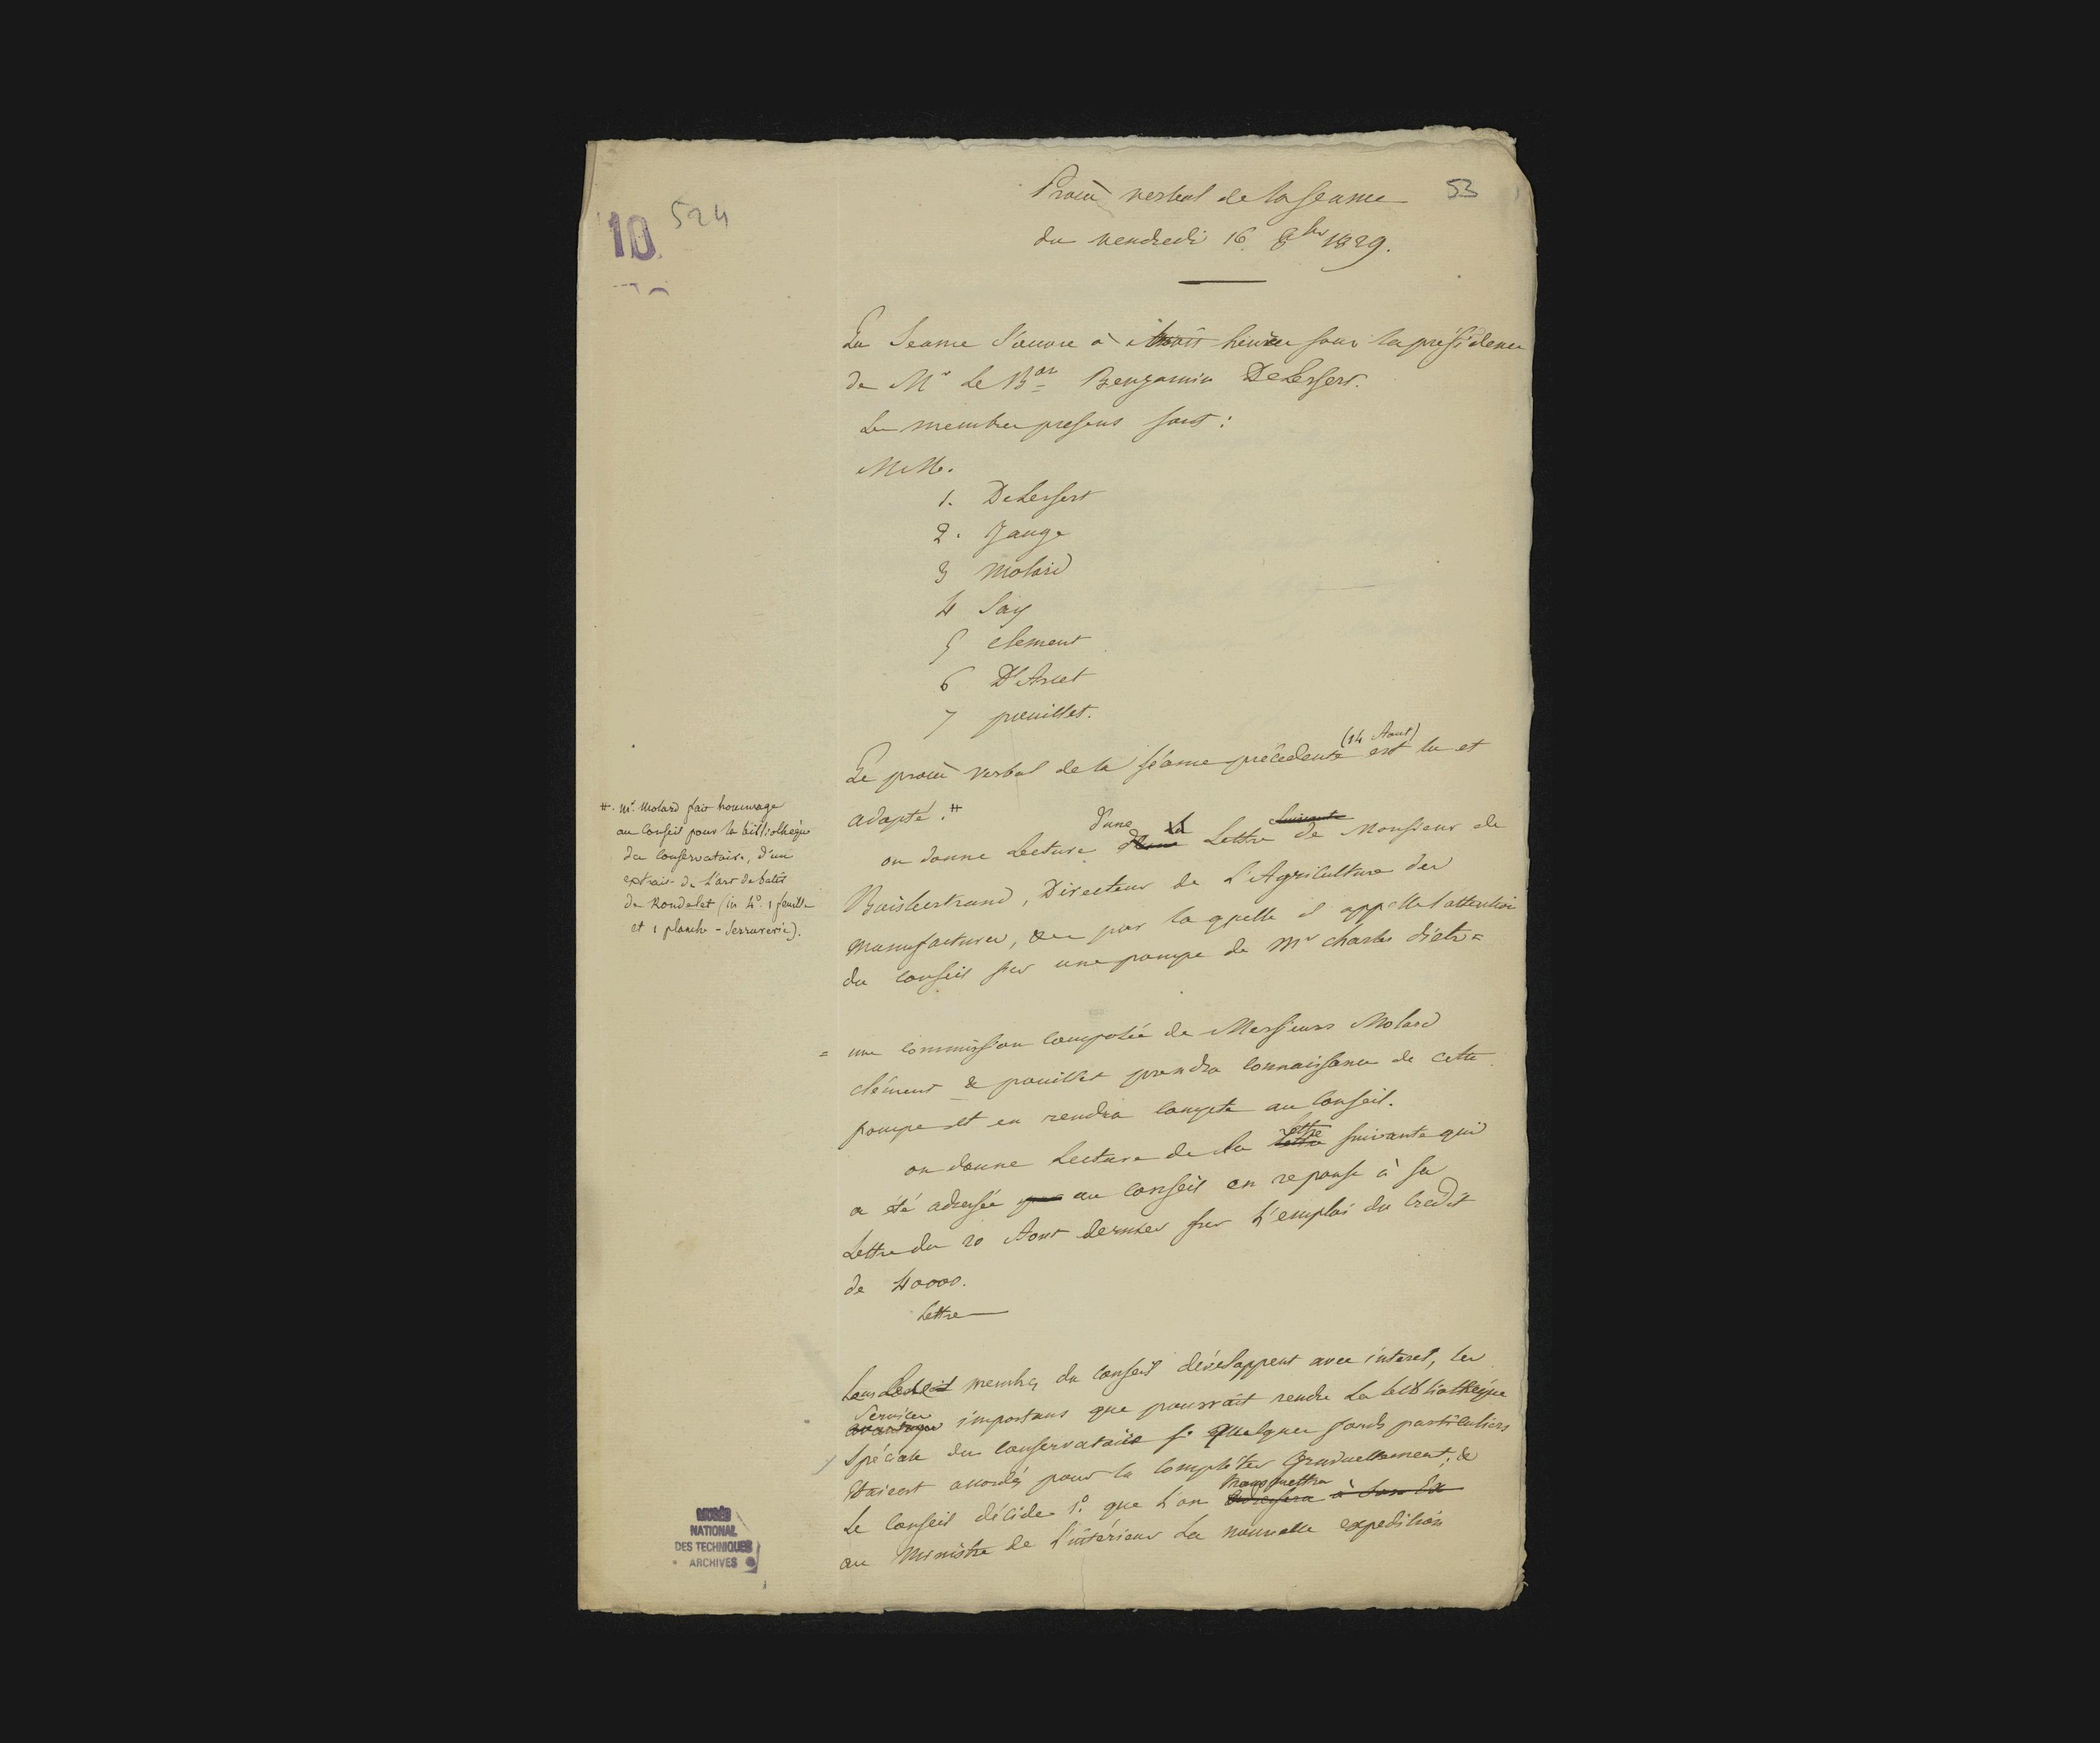 53
10 524
Procès verbal de la Seance
du vendredi 16. 8bre 1829.
La Seance S'ouvre à trois heures sous la présidence
de Mr Le Bon Benjamin DeLessert.
Les membres presens sont :
MM.
1. DeLessert
2. Jauge
3 Molard
4 Say
5 clement
6 D'Arcet
7 pouillet.
Le procès verbal de la séance précedente (14 Aout) est lu et
adopté. #
# . Mr. Molard fait hommage
au Conseil pour la bibliotheque
du Conservatoire, d'un
extrait de L'art de batir
de Rondelet (in 4° 1 feuille
et 1 planche - Serrurerie).
on donne Lecture d'une La Lettre suivante de Monsieur de
Boisbertrand, Directeur de L'Agriculture des
Manufactures, par laquelle il appelle l'attention
du Conseil sur une pompe de Mr charles dietz =
= une commission composée de Messieurs Molard
clément & pouillet prendra connaissance de cette
pompe et en rendra compte au Conseil.
on donne Lecture de la lettre Lettre suivante qui
a été adressée au Conseil en reponse à sa
Lettre du 20 Aout dernier sur L'emploi du Credit
de 40000.
Lettre
membres du Conseil développent avec interet, les
Services avantages importans que pourrait rendre La bibliothèque
Spéciale du Conservatoire si quelques fonds particuliers
étaient accordés pour la complèter Graduellement ; &
Le Conseil décide 1°. que L'on transmettra adressera à Son Ex
au Ministre de l'intérieur La nouvelle expedition
MUSÉE
NATIONAL
DES TECHNIQUES
ARCHIVES